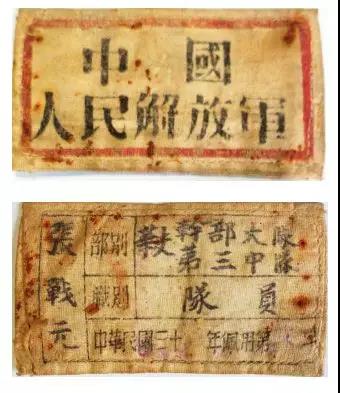 中國
人民解放軍
張戰元
部別
幹部大隊
第三中隊
職別
隊員
中華民國三十 年佩用第